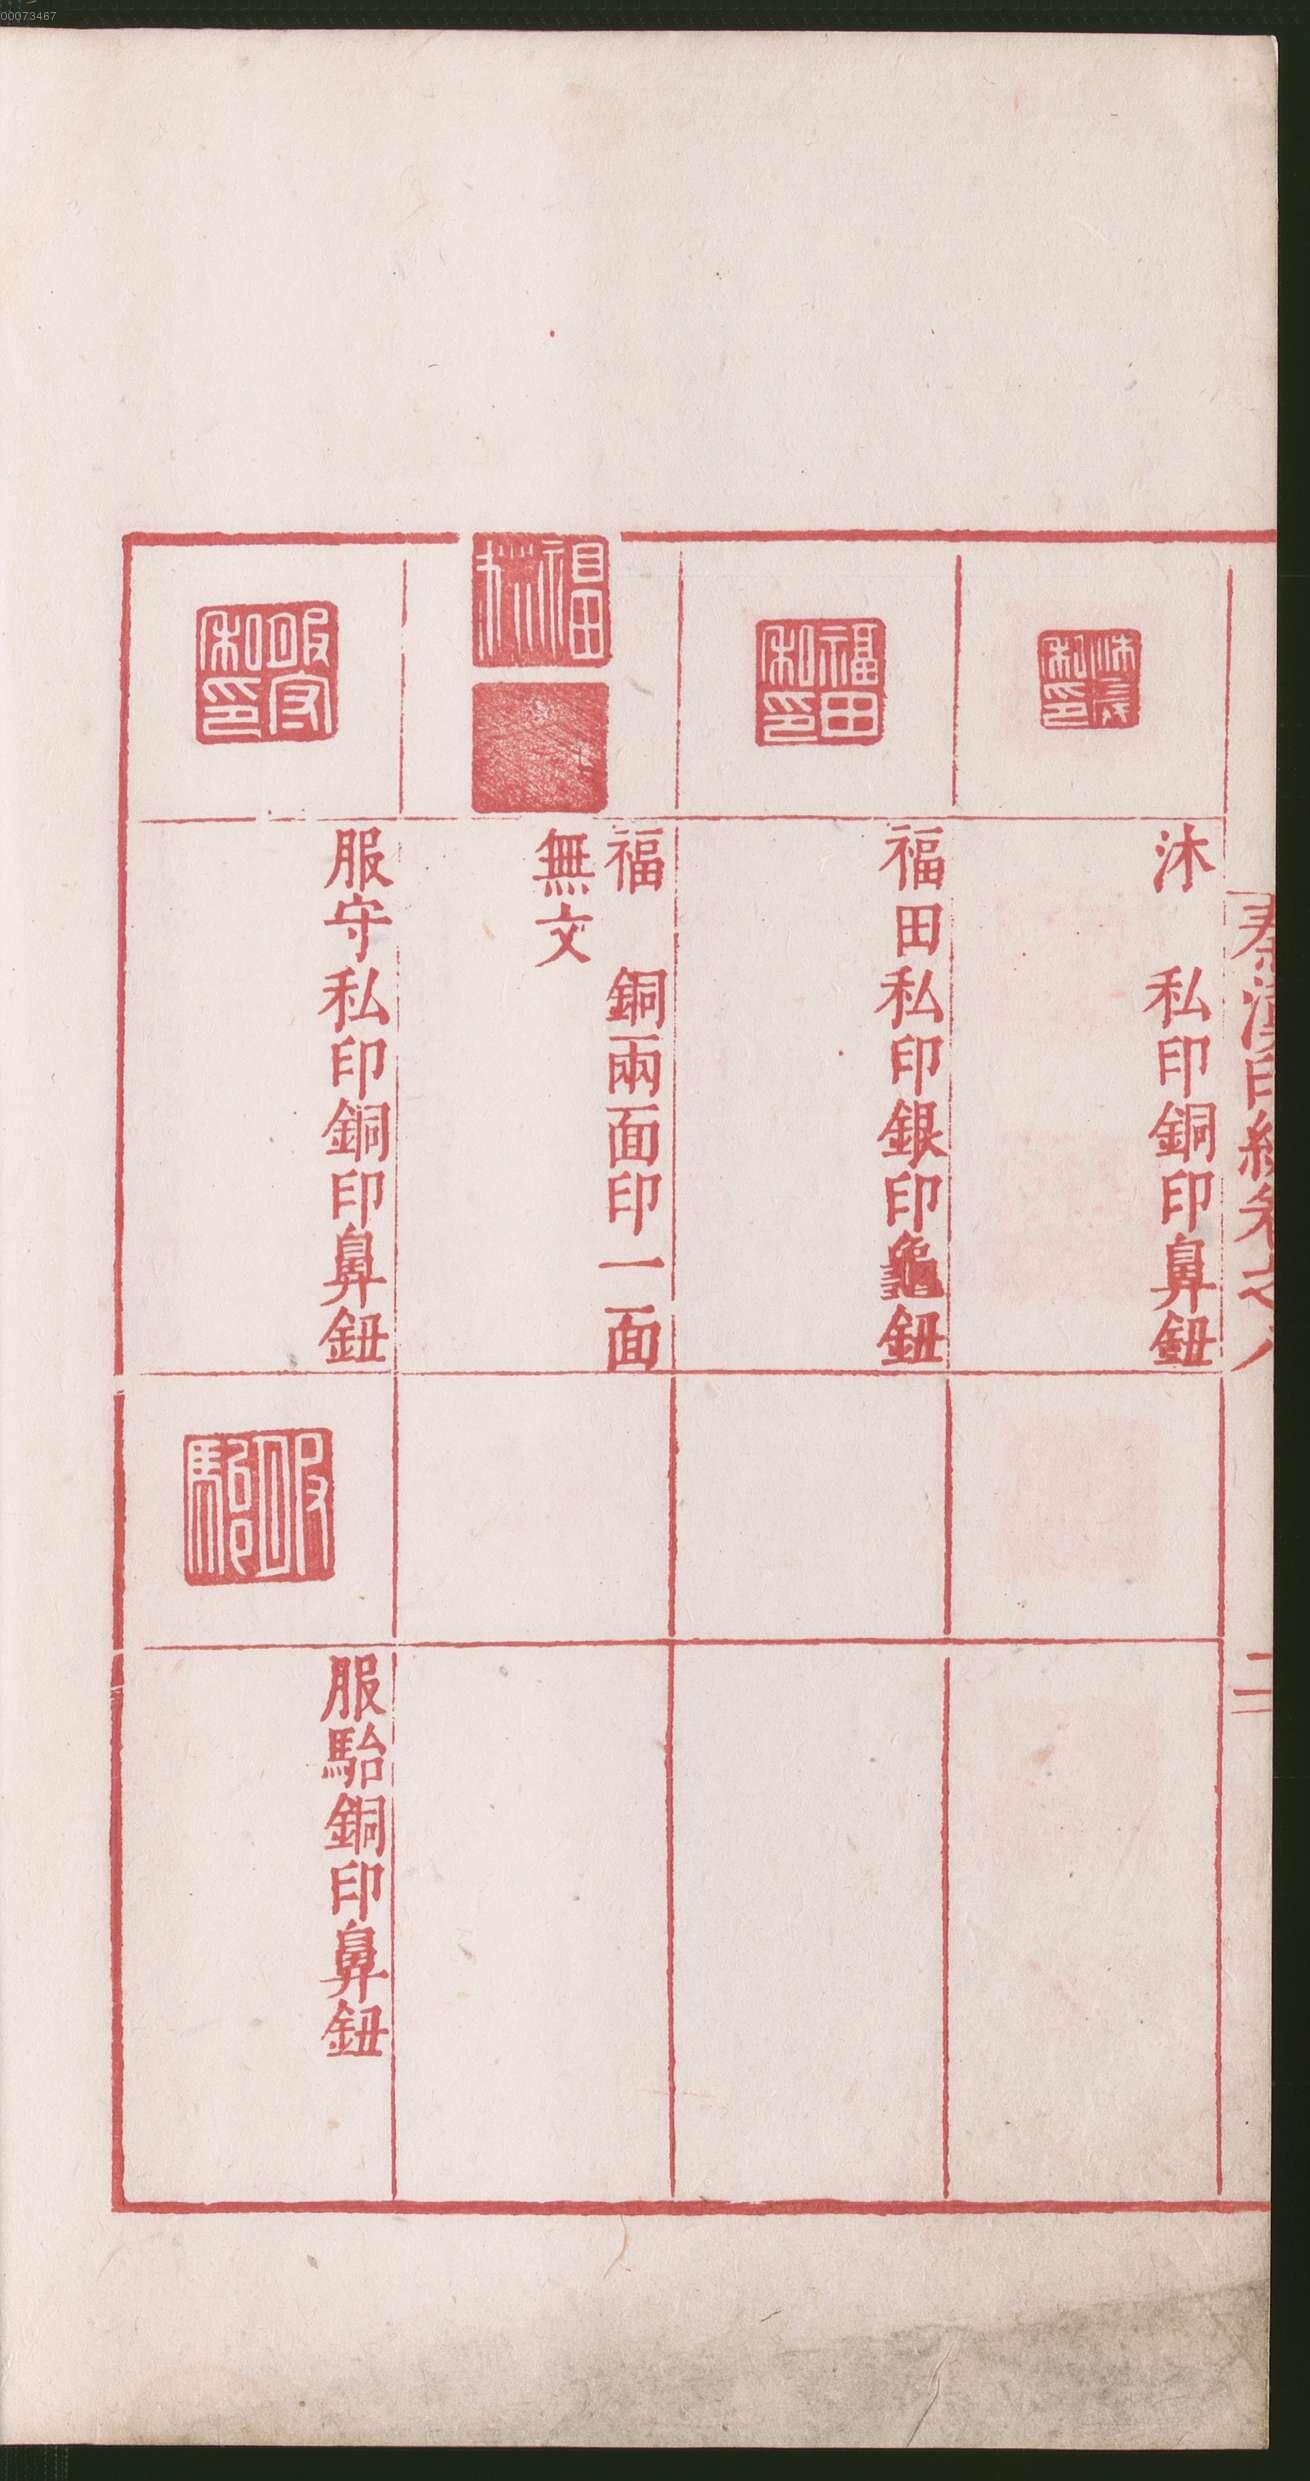 00073467
秦漢印統卷之八
二
沐 私印銅印鼻鈕
福田私印銀印龜鈕
福 銅兩面印一面
無文
服守私印銅印鼻鈕
服駘銅印鼻鈕
私印
福田私印
福
服守私印
服駘